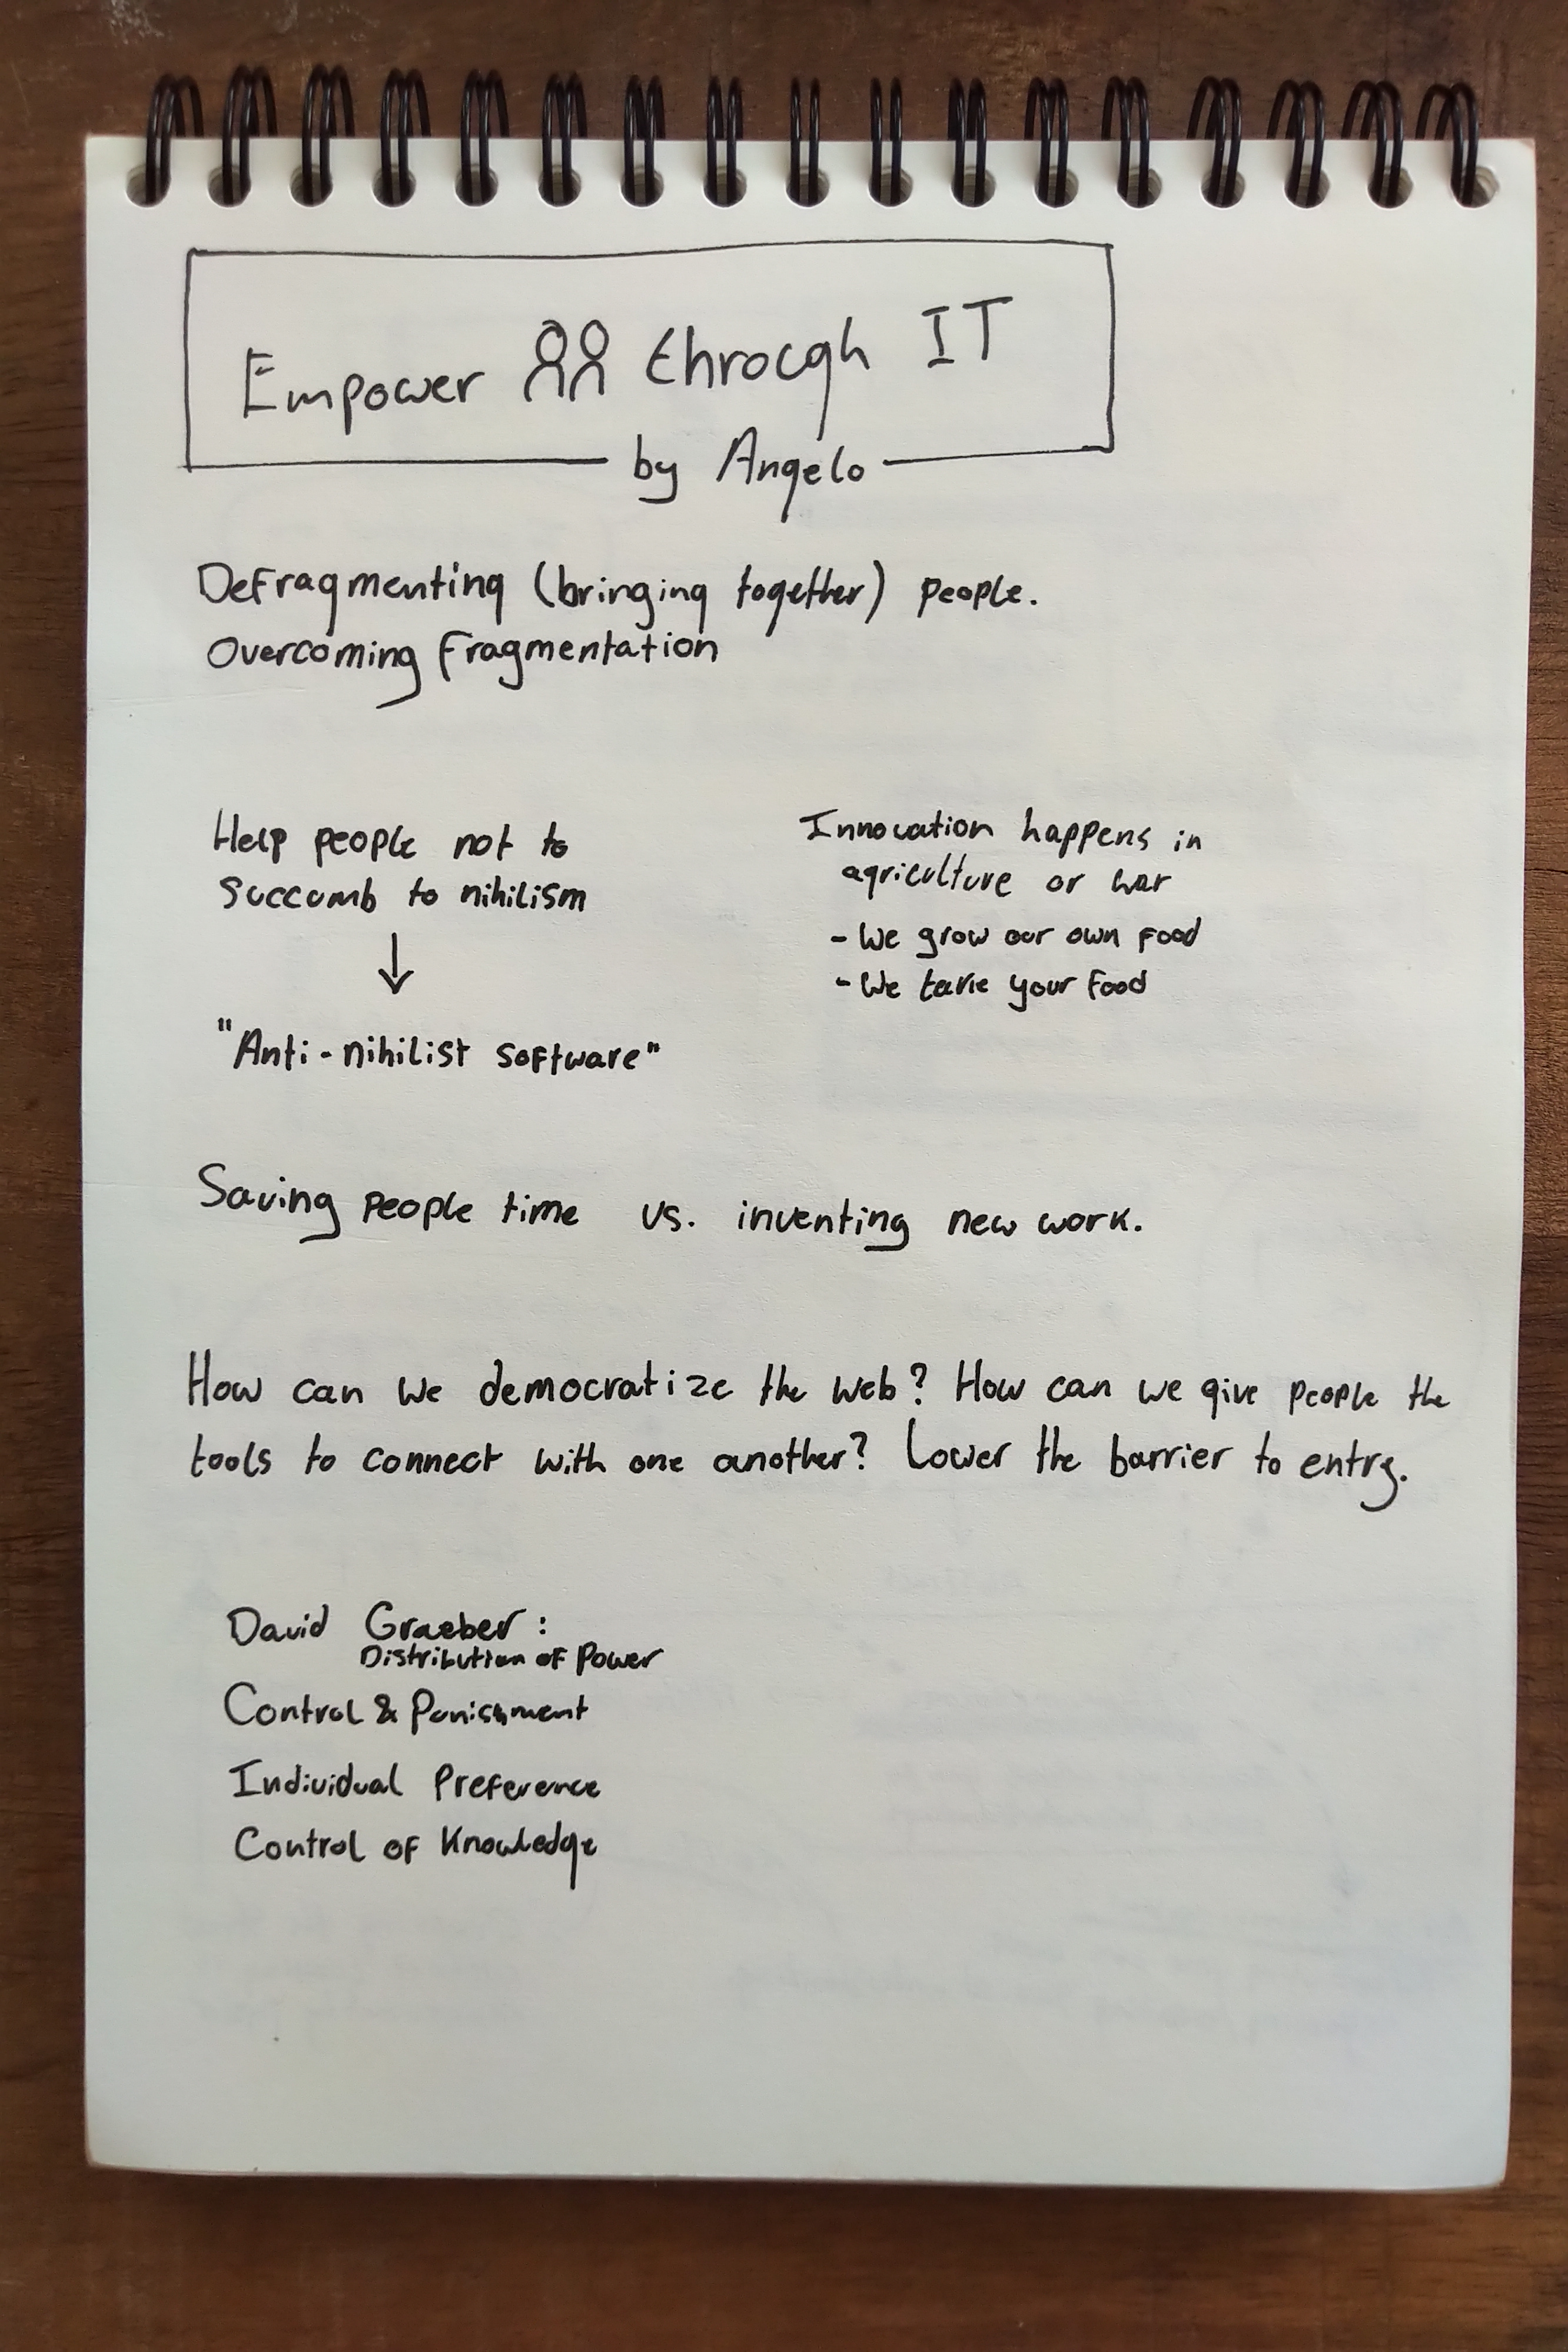 Empower through IT
by Angelo
Defragmenting (bringing together) people.
Overcoming fragmentation
Help people not to
succumb to nihilism
↓
"Anti-nihilist software"
Innovation happens in
agriculture or war
- We grow our own food
- We take your food
Saving people time vs. inventing new work.
How can we democratize the web? How can we give people the
tools to connect with one another? Lower the barrier to entry.
David Graeber:
Distribution of Power
Control & Punishment
Individual Preference
Control of Knowledge